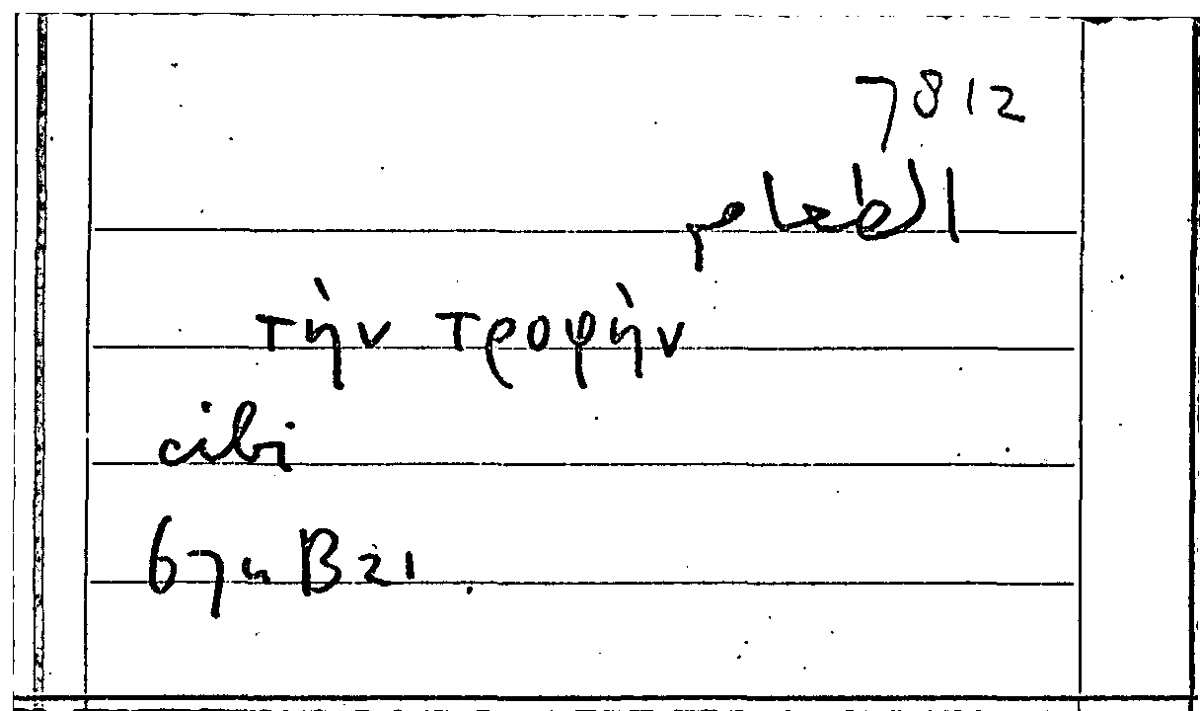 7812
الطعام
τὴν τροφὴν
cibi
674 B 21.